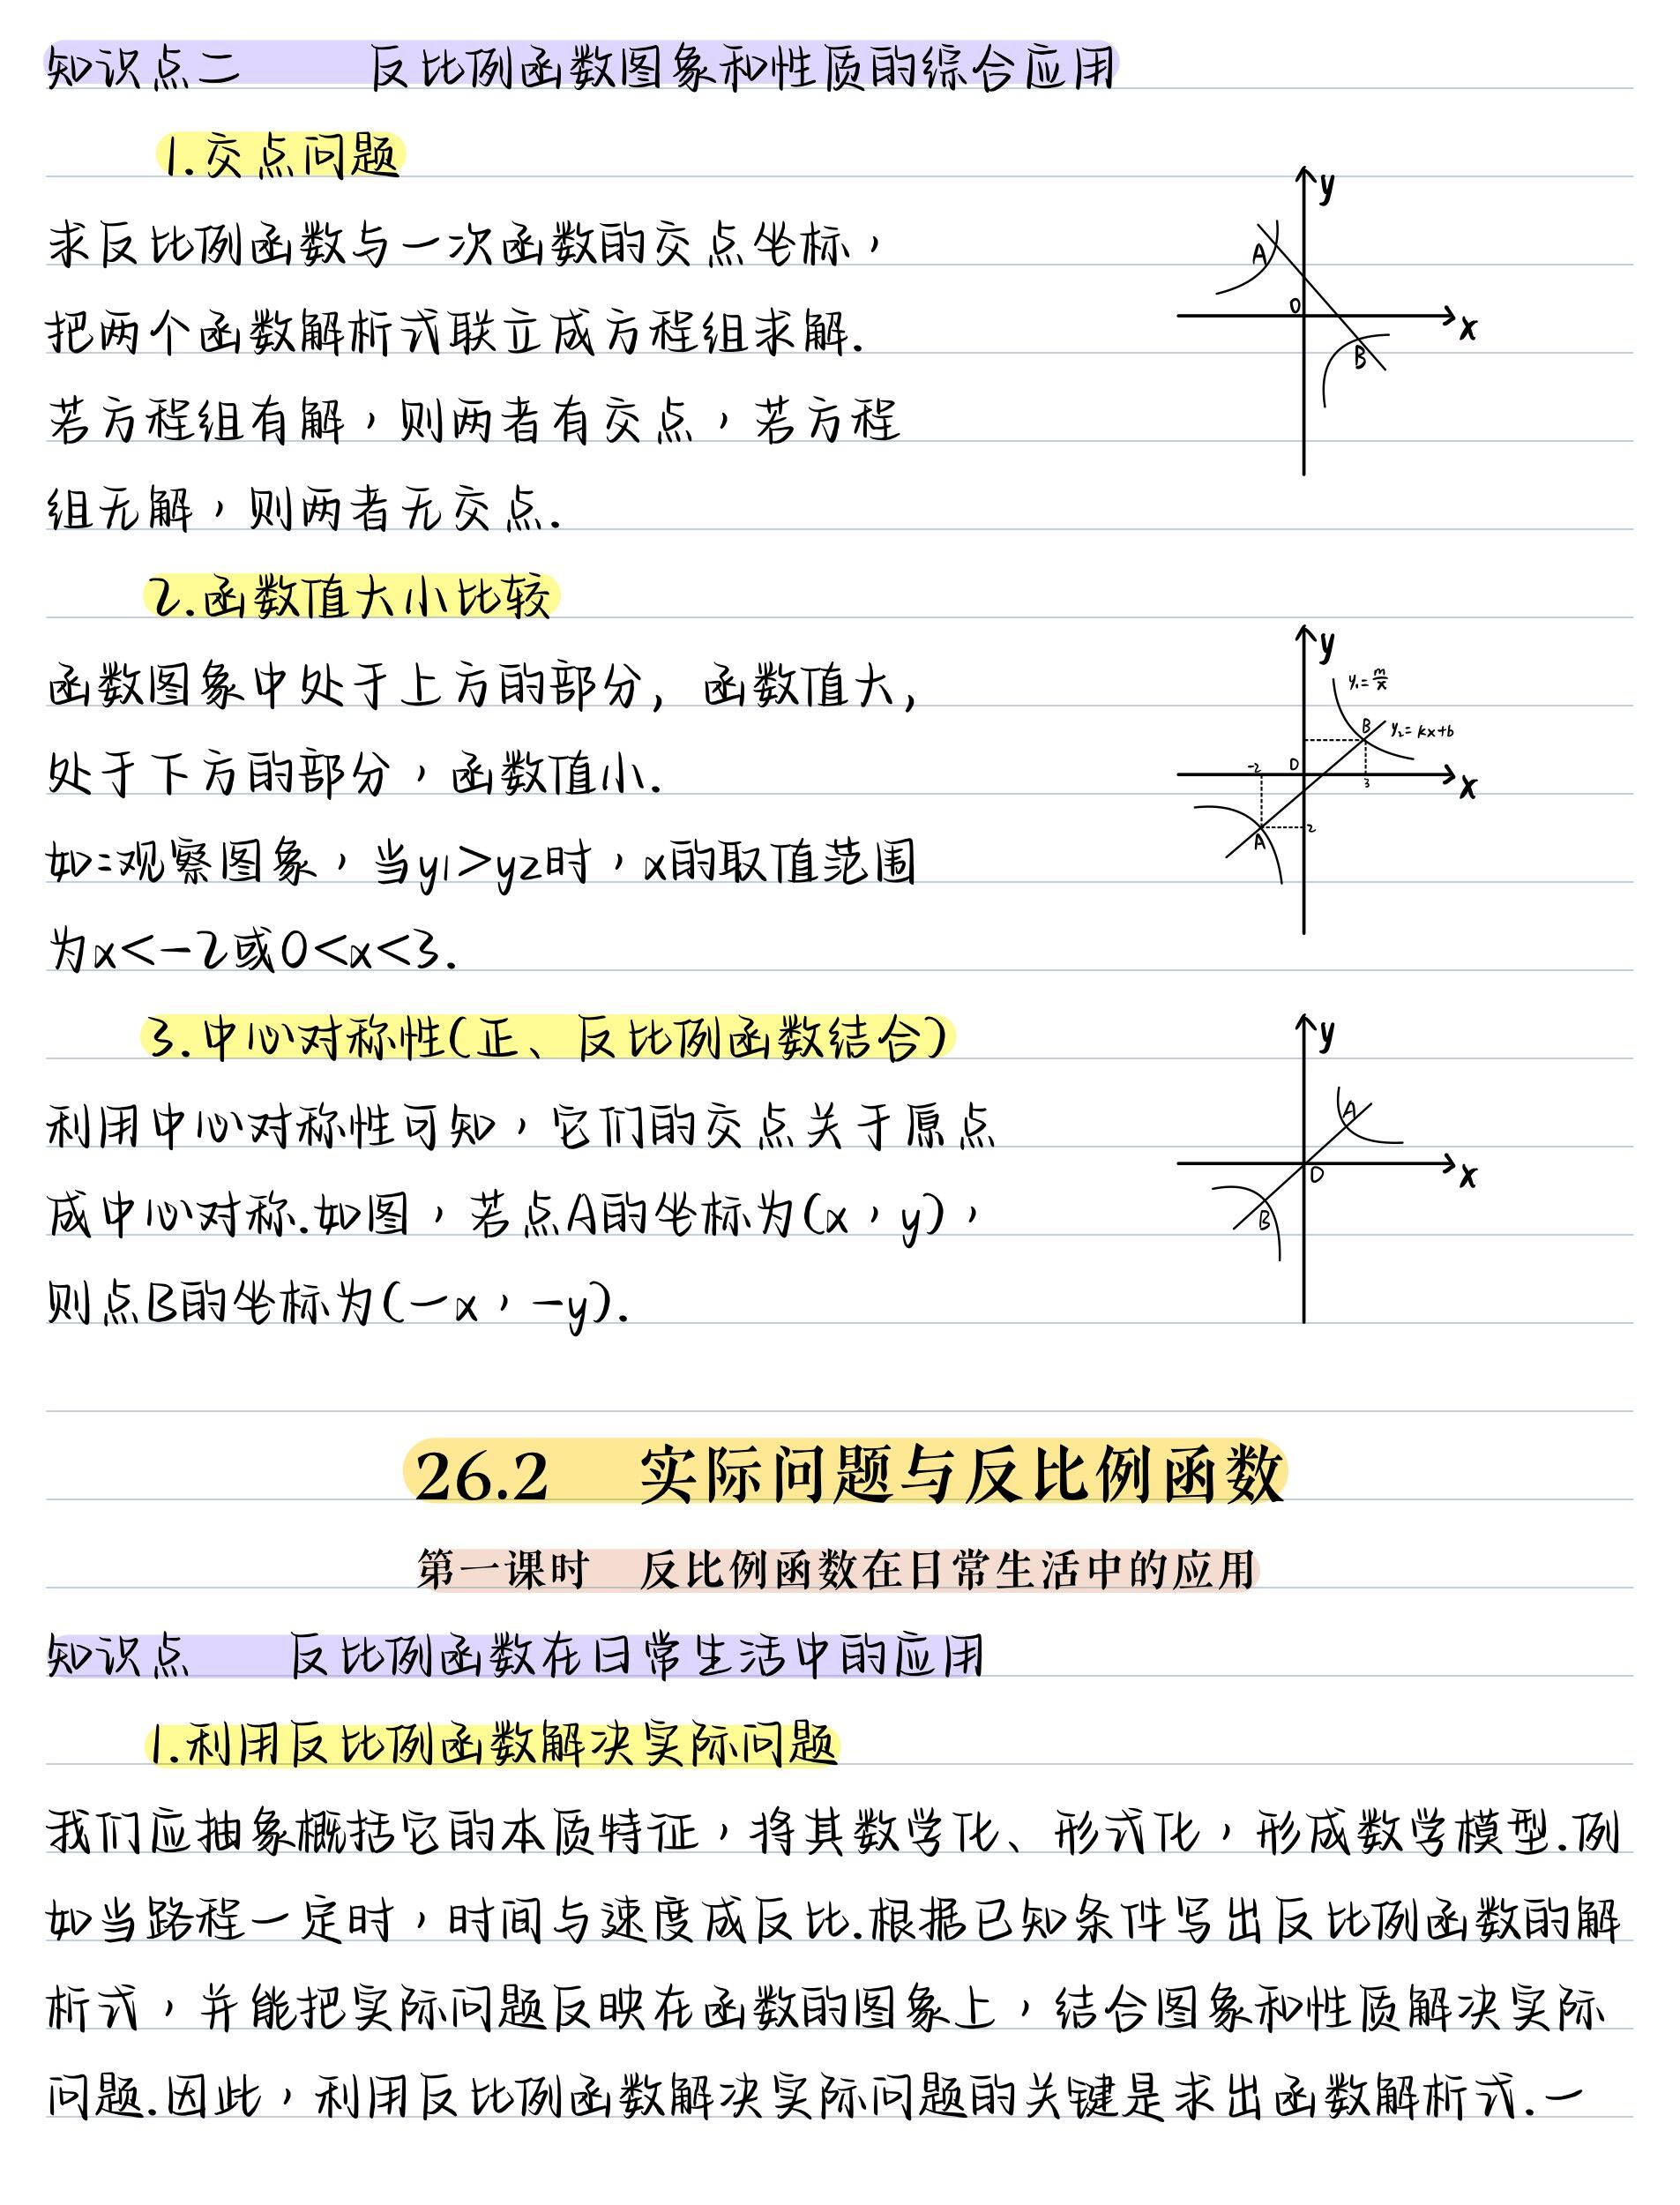 知识点二 反比例函数图象和性质的综合应用
1.交点问题
求反比例函数与一次函数的交点坐标，
把两个函数解析式联立成方程组求解.
若方程组有解，则两者有交点，若方程
组无解，则两者无交点.
y
A
O
x
B
2.函数值大小比较
函数图象中处于上方的部分，函数值大，
处于下方的部分，函数值小.
如:观察图象，当y1>y2时，x的取值范围
为x<-2或0<x<3.
y
y₁=m/x
B
y₂=kx+b
-2
O
3
x
A
2
3.中心对称性(正、反比例函数结合)
利用中心对称性可知，它们的交点关于原点
成中心对称.如图，若点A的坐标为(x，y)，
则点B的坐标为(-x，-y).
y
A
O
x
B
26.2 实际问题与反比例函数
第一课时 反比例函数在日常生活中的应用
知识点 反比例函数在日常生活中的应用
1.利用反比例函数解决实际问题
我们应抽象概括它的本质特征，将其数学化、形式化，形成数学模型.例
如当路程一定时，时间与速度成反比.根据已知条件写出反比例函数的解
析式，并能把实际问题反映在函数的图象上，结合图象和性质解决实际
问题.因此，利用反比例函数解决实际问题的关键是求出函数解析式.一